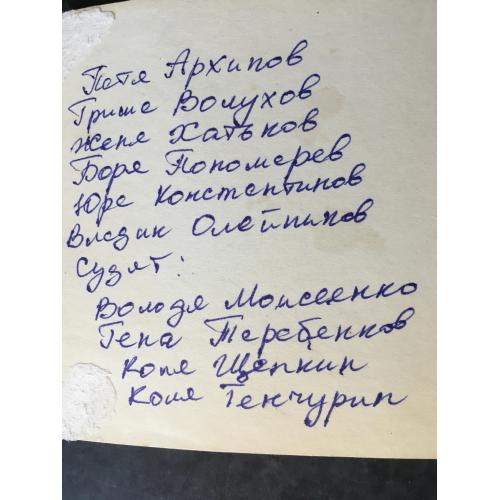 Петя Архипов
Гриша Волухов
Женя Хатьков
Боря Пономарев
Юра Константинов
Владик Олейников
Сидят:
Володя Моисеенко
Гена Теребенков
Коля Щепкин
Коля Генчурин